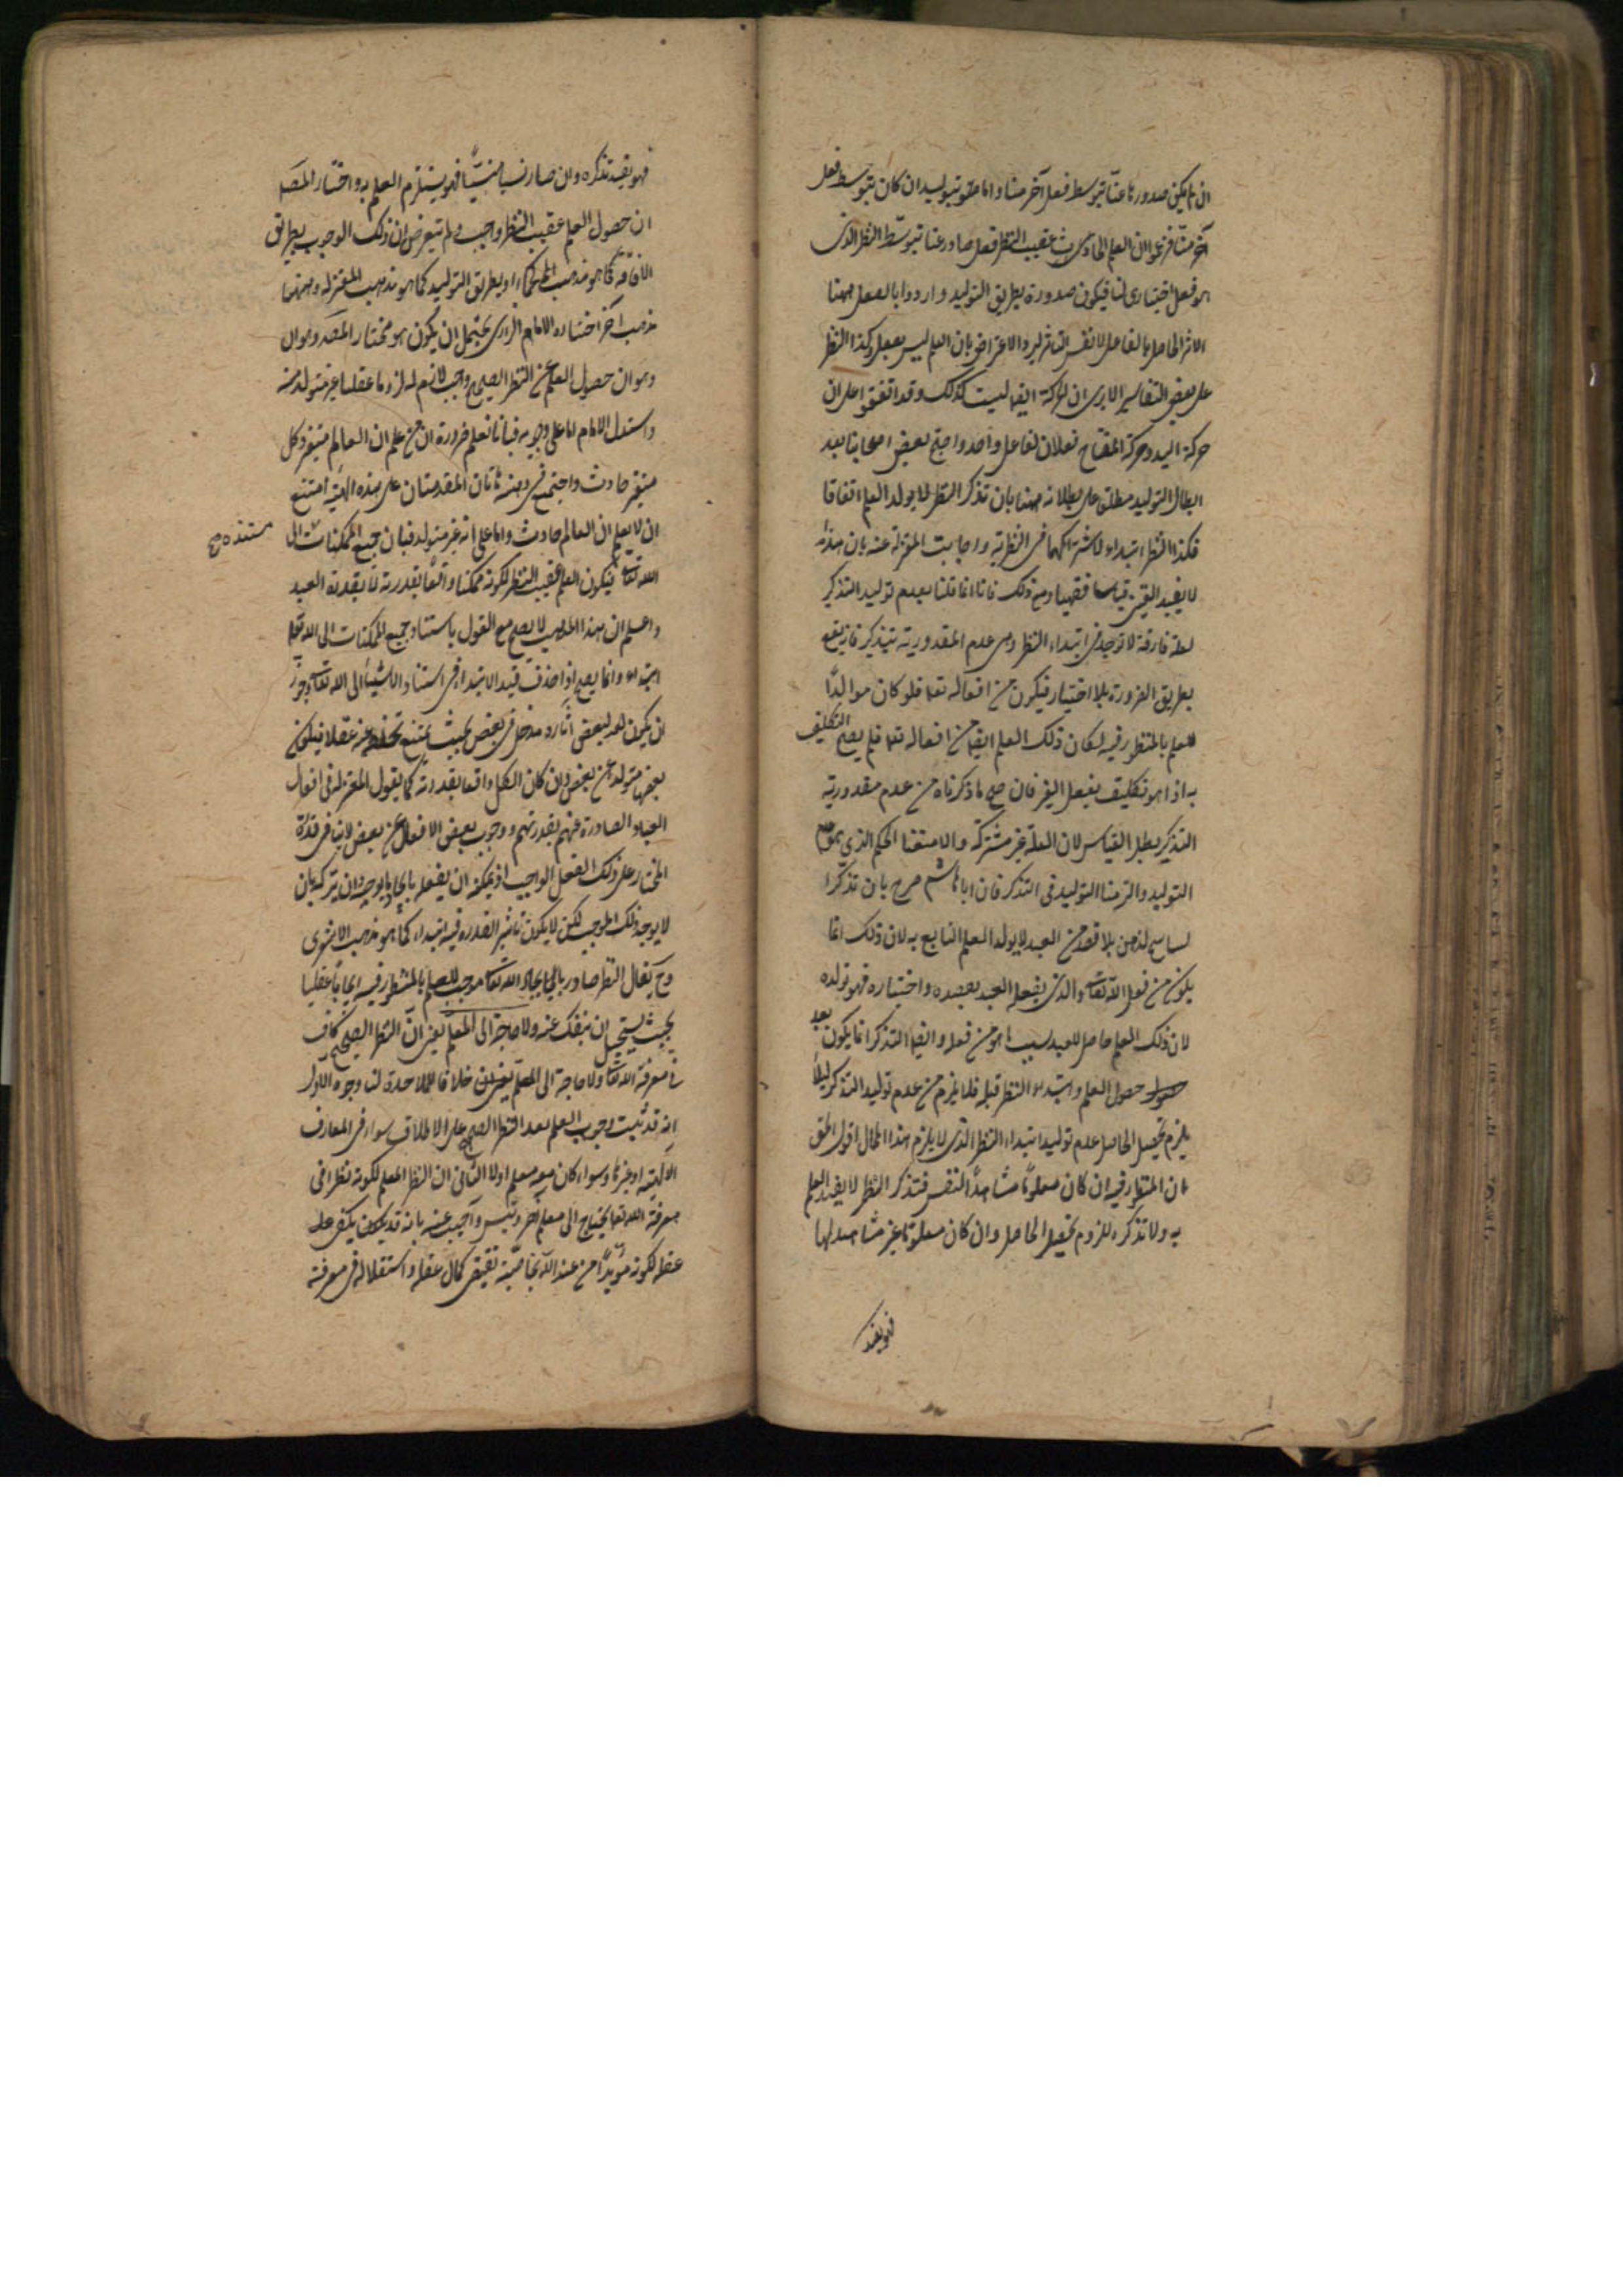 ان لم يكن صدورها عنا بتوسط فعل آخر منا واما صوّبتوليد ان كان بتوسط فعل
آخر منا فزعموا ان العلم الحادث عقيب النظر فعل صادر عنا بتوسط النظر الذى
هو فعل اختيارى لنا فيكون صدوره بطريق التوليد وارادوا بالفعل ههنا
الاثر الحاصل بالفاعل لا نفس التأثير والاعتراض بان العلم ليس بفعل وكذا النظر
على بعض التفاسير الا يرى ان الحركة ايضا ليست كذلك وقد اتفقوا على ان
حركة اليد وحركة المفتاح فعلان لفاعل واحد واحتج بعض اصحابنا بعد
ابطال التوليد مطلقا على بطلانه ههنا بان تذكر النظر لا يولد العلم اتفاقا
فكذا النظر ابتداء لاشتراكهما فى النظرية واجابت المعتزلة عنه بان هذا
لا يفيد اليقين قياسا فقهيا ومع ذلك فانا انما قلنا بعدم توليد التذكر
لعلة فارقة لا توجد فى ابتداء النظر وهى عدم المقدورية بتذكير فانه يقع
بطريق الضرورة بلا اختيار فيكون من افعاله تعا فلو كان مولدا
للعلم بالمنظور فيه لكان ذلك العلم ايضا من افعاله تعا فلم يصح التكليف
به اذا هو تكليف بفعل الغير فان صح ما ذكرناه من عدم مقدورية
التذكر بطل القياس لان العلة غير مشتركة والا منعنا الحكم الذى هو عدم
التوليد والتزمنا التوليد فى التذكر فان ابا هاشم صرح بان تذكرا
لسانح للذهن بلا قصد من العبد لا يولد العلم التابع به لان ذلك انما
يكون من فعل الله تعا والذى يفعله العبد بقصده واختياره فهو يولده
لان ذلك العلم حاصل للعبد بسبب ما هو من فعله وايضا التذكر انما يكون بعد
حصول العلم وابتداء النظر قبله فلا يلزم من عدم توليد التذكر لئلا
يلزم تحصيل الحاصل عدم توليد ابتداء النظر الذى لا يلزم هذا المحال اقول الحق
ان المنظور فيه ان كان معلوما مشاهدا للنفس فتذكر النظر لا يفيد العلم
به ولا تذكره للزوم تحصيل الحاصل وان كان معلوما غير مشاهد لها
فهو يفيد
فهو يفيد تذكره وان صار نسيا منسيا فهو يستلزم العلم به واختار المص
ان حصول العلم عقيب النظر واجب ولم يتعرض ان ذلك الوجوب بطريق
الافاضة كما هو مذهب الحكماء او بطريق التوليد كما هو مذهب المعتزلة وههنا
مذهب آخر اختاره الامام الرازى يحتمل ان يكون هو مختار المص وهو ان
وهو ان حصول العلم عن النظر الصحيح واجب لازم له لزوما عقليا غير متولد منه
واستدل الامام اما على وجوبه فبانا نعلم ضرورة ان من علم ان العالم متغير وكل
متغير حادث واجتمع فى ذهنه هاتان المقدمتان على هذه الهيئة امتنع
ان لا يعلم ان العالم حادث واما على انه غير متولد فبان جميع الممكنات الى
مستندة صح
الله تعا فيكون العلم عقيب النظر لكونه ممكنا واقعا بقدرته لا بقدرة العبد
واعلم ان هذا المذهب لا يصح مع القول باستناد جميع الممكنات الى الله تعا
ابتداء وانما يصح اذا حذف قيد الابتداء فى استناد الاشياء الى الله تعا وجوز
ان يكون لبعض آثاره مدخل فى بعض بحيث يمتنع تخلفه عنه عقلا فيكون
بعضها متولدا عن بعض وان كان الكل واقعا بقدرته كما يقول المعتزلة فى افعال
العباد الصادرة عنهم بقدرتهم ووجوب بعض الافعال عن بعض لا ينافى قدرة
المختار على ذلك الفعل الواجب اذ يمكنه ان يفعله بايجاد ما يوجبه وان يتركه بان
لا يوجد ذلك الموجب لكن لا يكون تأثير القدرة فيه ابتداء كما هو مذهب الاشعرى
وح يقال النظر صادر بايجاد الله تعا موجب للعلم بالمنظور فيه ايجابا عقليا
بحيث يستحيل ان ينفك عنه ولا حاجة الى المعلم يعنى ان النظر الصحيح كاف
فى معرفة الله تعا ولا حاجة الى المعلم خلافا للملاحدة لنا وجوه الاول
انه قد ثبت وجوب العلم بعد النظر الصحيح على الاطلاق سواء فى المعارف
الآلهية او غيرها وسواء كان معه معلم او لا الثانى ان النظر المعلم لكونه نظرا فى
معرفة الله تعا يحتاج الى معلم آخر ويتس واجيب عنه بانه قد يكفى
عقله لكونه مؤيدا من عند الله بخاصية تقتضى كمال عقله واستقلاله فى معرفة